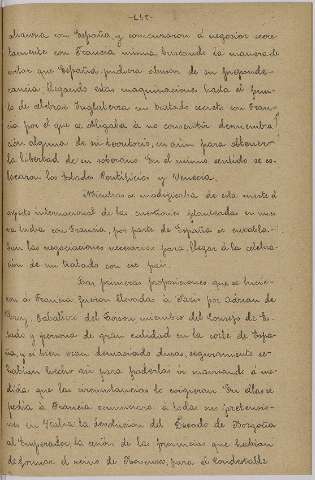 alianza con España, y comenzaron á negociar secre-
tamente con Francia misma buscando la manera de
evitar que España pudiera abusar de su preponde-
rancia llegando estas maquinaciones hasta el pun-
to de celebrar Inglaterra un tratado secreto con Fran-
cia por el que se obligaba á no consentir desmembra-
ción alguna de su territorio, ni aun para obtener
la libertad de su soberano. En el mismo sentido se co-
locaron los Estados Pontificios y Venecia.
Mientras se modificaba de esta suerte el
aspecto internacional de las cuestiones planteadas en nues-
tra lucha con Francia, por parte de España se entabla-
ban las negociaciones necesarias para llegar á la celebra-
ción de un tratado con ese pais.
Las primeras proposiciones que se hicie-
ron á Francia fueron llevadas á Paris por Adrian de
Croy, miembro del Consejo de Es-
tado y persona de gran calidad en la corte de Espa-
ña, y si bien eran demasiado duras, seguramente se
habian hecho asi para poderlas ir suavizando á me-
dida que las circunstancias lo exigieran. En ellas se
pedia á Francia renunciara á todas sus pretensio-
nes en Italia la devolucion del Ducado de Borgoña
al Emperador, la cesion de las provincias que habian
de formar el reino de para el Condestable